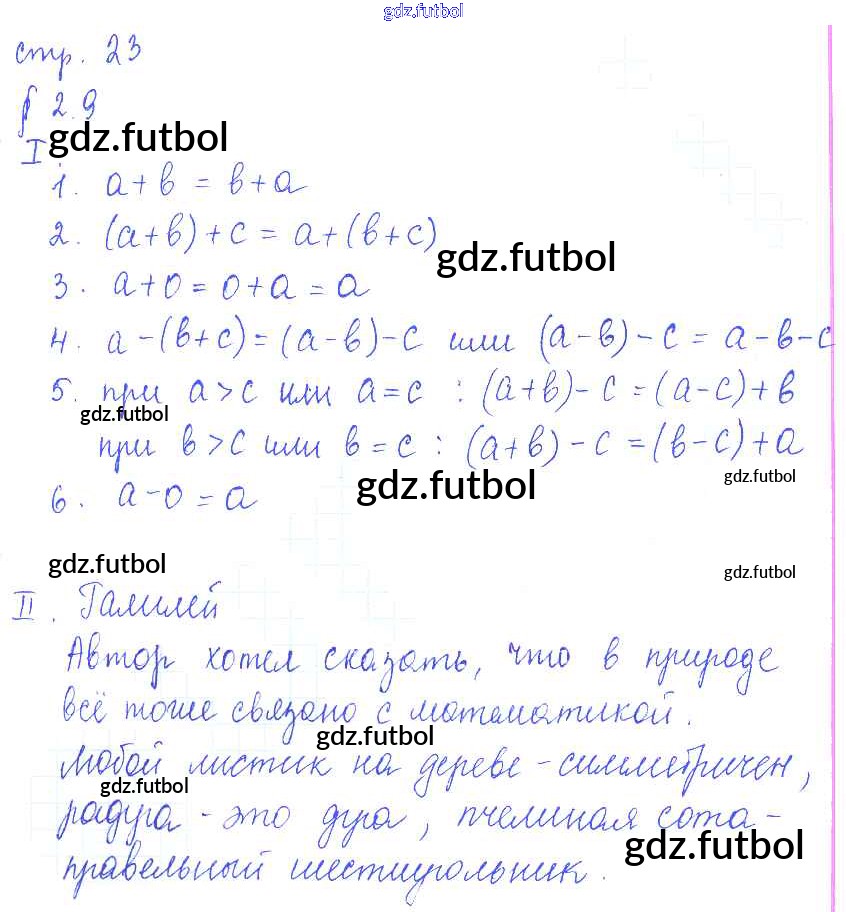 gdz.futbol
стр. 23
§ 2.9
gdz.futbol
I
1. a+b = b+a
2. (a+b)+c = a+(b+c)
gdz.futbol
3. a+0=0+a=a
4. a-(b+c)=(a-b)-c или (a-b)-c=a-b-c
5. при a>c или a=c : (a+b)-c=(a-c)+b
gdz.futbol
при b>c или b=c : (a+b)-c=(b-c)+a
gdz.futbol
gdz.futbol
6. a-0=a
gdz.futbol
gdz.futbol
II. Галилей
Автор хотел сказать, что в природе
всё тоже связано с математикой.
gdz.futbol
Любой листик на дереве - симметричен,
gdz.futbol
радуга - это дуга, пчелиная сота -
gdz.futbol
правельный шестиугольник.